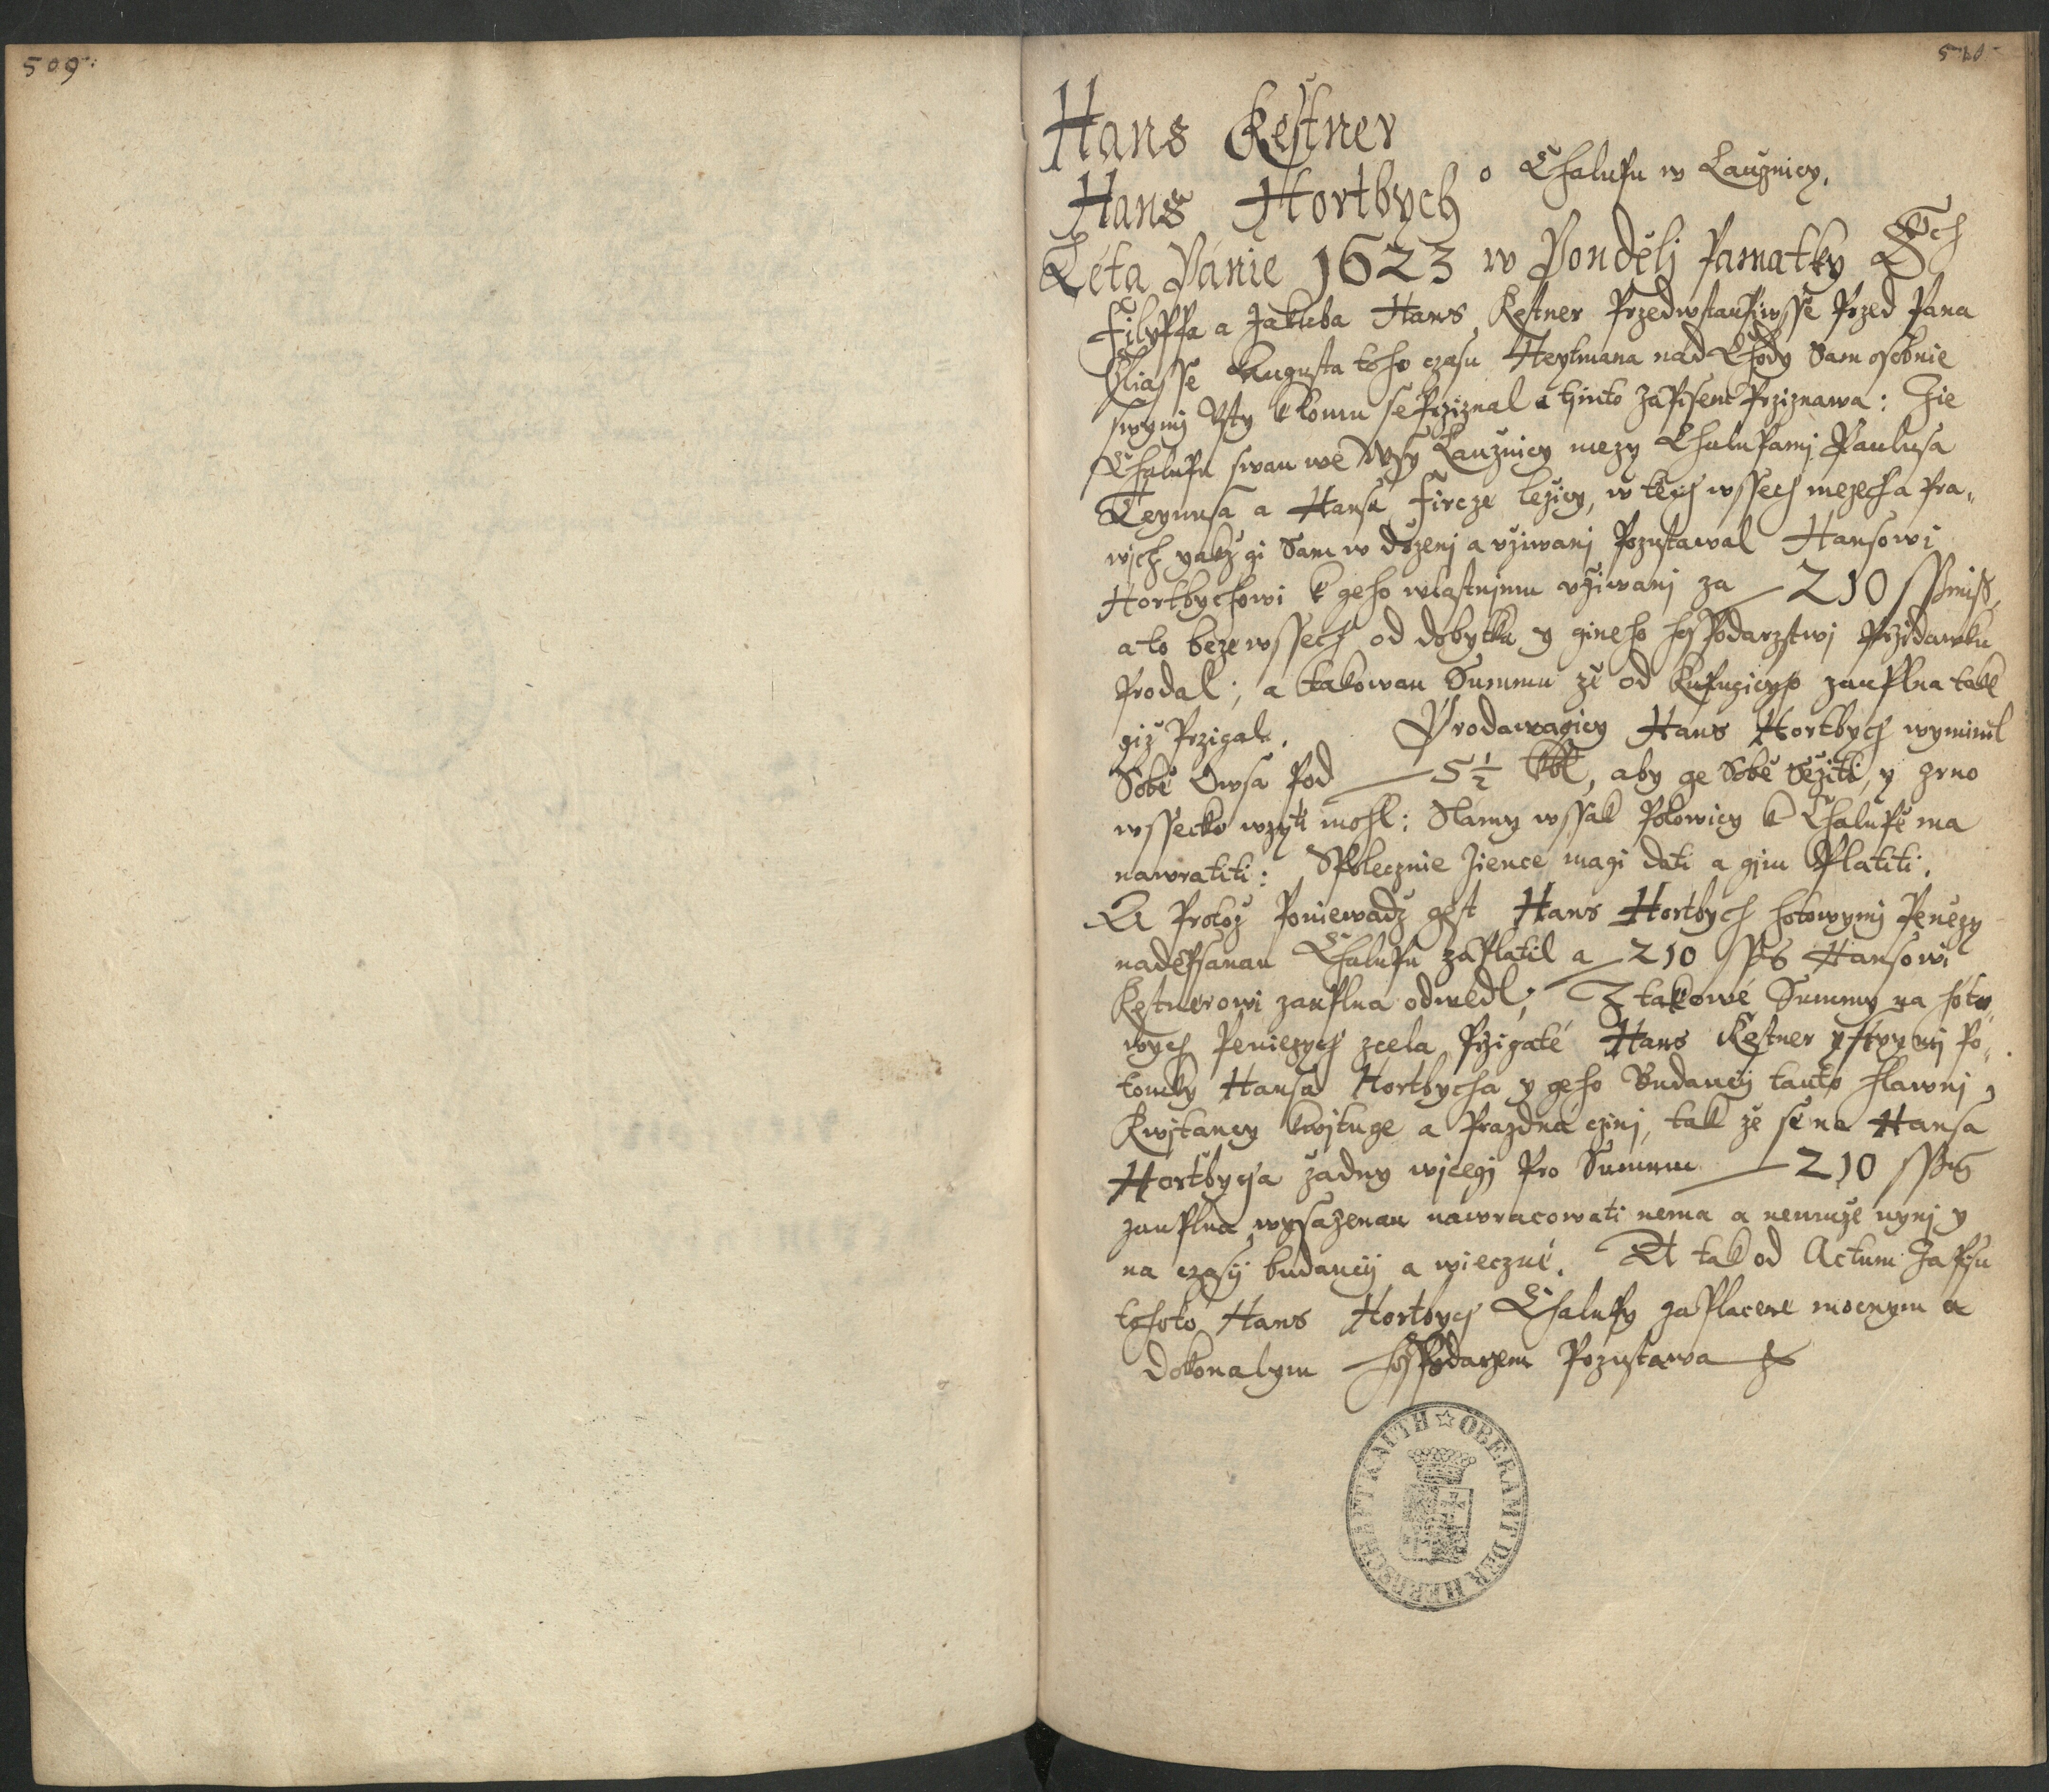 509
510
Hans Kestner
o Chalupu w Laužniczy.
Hans Hortbych
Léta Pánie 1623 w Pondělj Pamatky SSch
Filyppa a Jakuba Hans Kestner Przedwstaupiwsse Przed Pana
Eliasse Augusta toho czasu Heytmana nad Chody Sam osobnie
swymj Vsty k tomu se Prziznal a tjmto Zapisem Prziznawa: Zie
Chalupu swau we Wsy Laužniczy mezy Chalupamj Paulusa
a Hansa Fircze ležiczy, w tiech wssech mezech a Pra„
wjch yakž gi Sam w drženj a vžiwanj Pozustawal Hansowi
Hortbychowi k geho wlastnjmu vžiwanj za 210 ssmiss,
a to beze wssech od dobytka y gineho hospodarzstwj Przidawku
Prodal; a takowau Summu že od Kupugiczyho zauplna také
giž Przigal. Prodawagiczy Hans Hortbych wyminil
Sobě Owsa Pod 5 1/2 , aby ge Sobě Sežiti, y zrno
wssecko wzyti mohl: Slamy wssak Polowiczy k Chalupě ma
nawratiti: Spolecznie Ziencze magi dati a gjm Platiti.
A Protož Poniewadž gest Hans Hortbych hotowymj Peniezy
nadepsanau Chalupu zaplatil a 210 ssms Hansowi
Kestnerowi zauplna odwedl; Z takowé Summy na hoto„
wych Peniezych zcela Przigaté Hans Kestner y swymj Po„
tomky Hansa Hortbycha y geho Buduczy tauto hlawnj
Kwjtanczy kwjtuge a Prazdna czinj, tak že se na Hansa
Hortbycha žadny wjcegj Pro Summu 210 ssms
zauplna wysazenau nawraczowati nema a nemuže nynj y
na czasy buduczy a wieczné. A tak od Actum Zapisu
tohoto Hans Hortbych Chalupy zaplacené mocnym a
dokonalym hospodarzem Pozustawa
OBERAMT DER HERRSCHAFT KAUTH